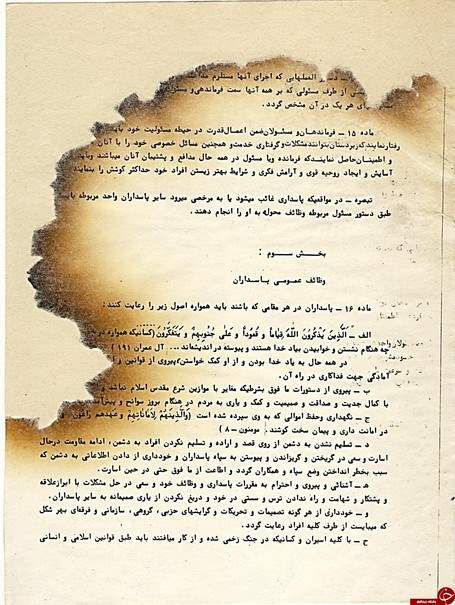 ـ دستور العملهایی که اجرای آنها مستلزم
از طرف مسئولی که بر همه آنها سمت فرماندهی و
هر یک در آن مشخص گردد .
ماده ۱۵ ـ فرماندهان و مسئولان ضمن اعمال قدرت در حیطه مسئولیت خود باید
رفتار نمایند که زیردستان بتوانند مشکلات و گرفتاری خدمت و همچنین مسائل خصوصی خود را با آنان
و اطمینان حاصل نمایند که فرمانده و یا مسئول در همه حال مدافع و پشتیبان آنان میباشد و باید
آسایش و ایجاد روحیه قوی و آرامش فکری و شرایط بهتر زیستن افراد خود حداکثر کوشش را بنمایند
تبصره ـ در مواقعیکه پاسداری غائب میشود یا به مرخصی میرود سایر پاسداران واحد مربوطه باید
طبق دستور مسئول مربوطه وظائف محوله به او را انجام دهند .
بخش سوم :
وظائف عمومی پاسداران
ماده ۱۶ ـ پاسداران در هر مقامی که باشند باید همواره اصول زیر را رعایت کنند :
الف ـ اَلَّذینَ یَذْکُرُونَ اللّهَ قِیاماً وَ قُعُوداً وَ عَلی جُنُوبِهِمْ وَ یَتَفَکَّرُونَ (کسانیکه همواره در
چه هنگام نشستن و خوابیدن بیاد خدا هستند و پیوسته در اندیشه‌اند ... آل عمران ۱۹۱)
در همه حال به یاد خدا بودن و از او کمک خواستن، پیروی از قوانین و
آمادگی جهت فداکاری در راه آن .
ب ـ پیروی از دستورات ما فوق بشرطیکه مغایر با موازین شرع مقدس اسلام نباشد و
با کمال جدیت و صداقت و صمیمیت و کمک و یاری به مردم در هنگام بروز سوانح و
ج ـ نگهداری و حفظ اموالی که به وی سپرده شده است (وَالَّذینَهُمْ لِاَماناتِهِمْ وَ عَهْدِهِمْ راعُونَ . و
در امانت داری و پیمان سخت کوشند . مومنون ـ ۸)
د ـ تسلیم نشدن به دشمن از روی قصد و اراده و تسلیم نکردن افراد به دشمن ، ادامه مقاومت درحال
اسارت و سعی در گریختن و گریزاندن و پیوستن به سپاه پاسداران و خودداری از دادن اطلاعاتی به دشمن که
سبب بخطر انداختن وضع سپاه و همکاران گردد و اطاعت از ما فوق حتی در حین اسارت .
ه ـ آشنائی و پیروی و احترام به مقررات پاسداری و وظائف خود و سعی در حل مشکلات با ابراز علاقه
و پشتکار و شهامت و راه ندادن ترس و سستی در خود و دریغ نکردن از یاری صمیمانه به سایر پاسداران .
و ـ خودداری از هر گونه تصمیمات و تحریکات و گرایشهای حزبی ، گروهی ، سازمانی و فرقه‌ای بهر شکل
که میبایست از طرف کلیه افراد رعایت گردد .
ح ـ با کلیه اسیران و کسانیکه در جنگ زخمی شده و از کار میافتند باید طبق قوانین اسلامی و انسانی